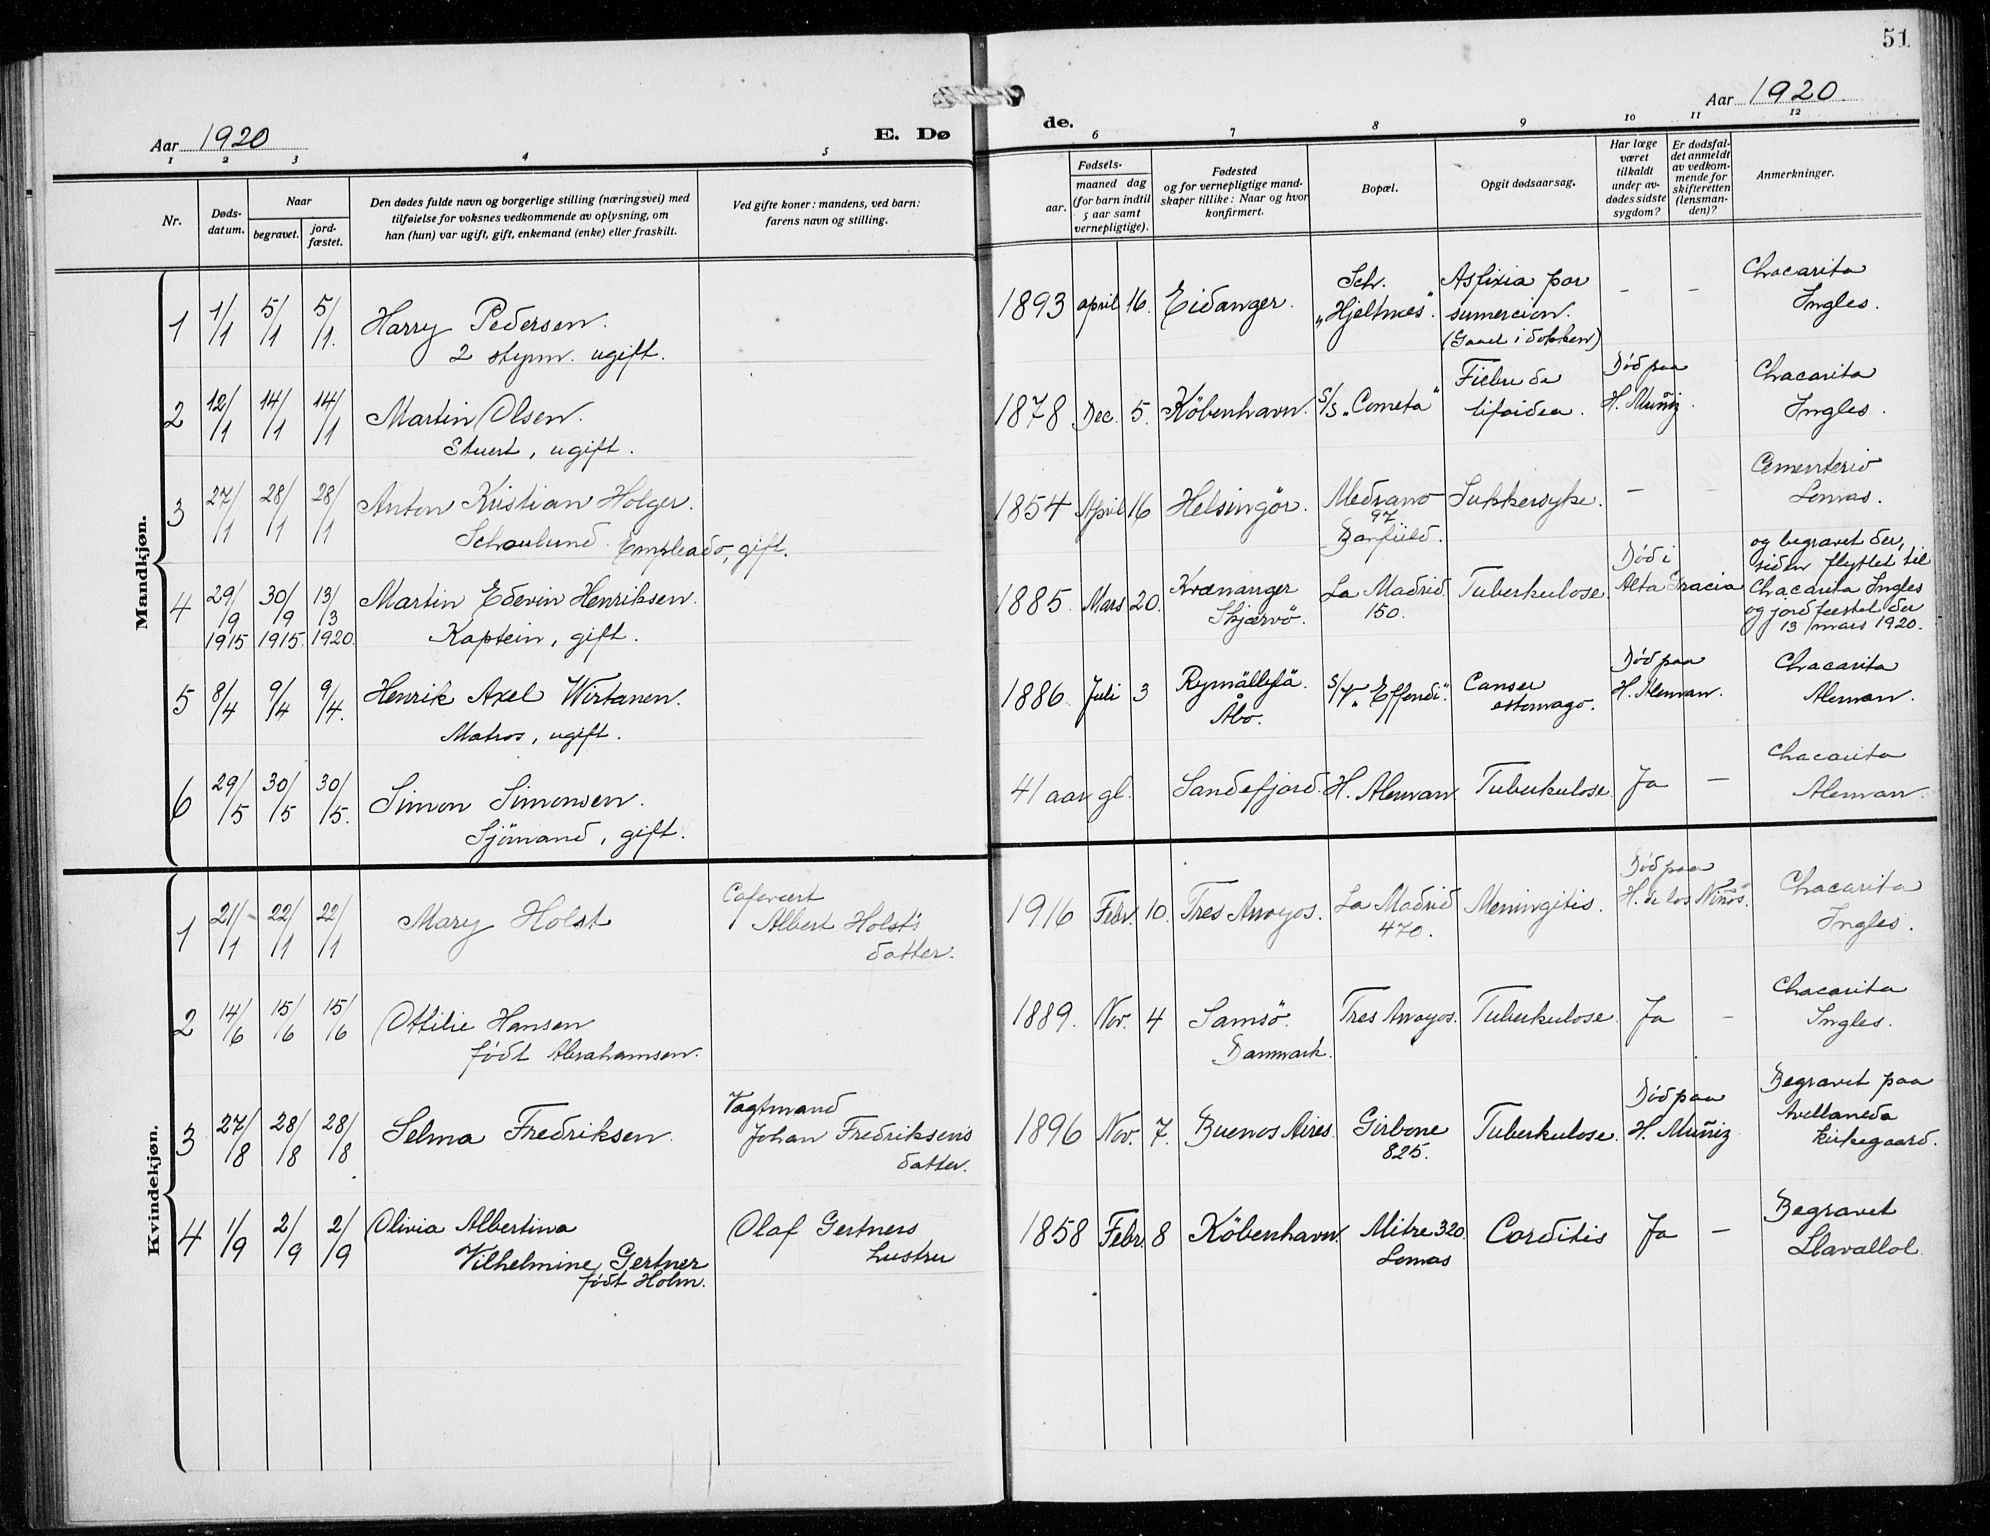 51
Aar 1920
E. Dø
de.
Aar 1920
1 2 3 4 5
6 7 8 9 10 11 12
Nr.
Døds-
datum.
Naar
begravet.
jord-
fæstet.
Den dødes fulde navn og borgerlige stilling (næringsvei) med
tilføielse for voksnes vedkommende av oplysning, om
han (hun) var ugift, gift, enkemand (enke) eller fraskilt.
Ved gifte koner: mandens, ved barn:
farens navn og stilling.
Fødsels-
aar.
maaned dag
(for barn indtil
5 aar samt
vernepligtige).
Fødested
og for vernepligtige mand-
skaper tillike: Naar og hvor
konfirmert.
Bopæl.
Opgit dødsaarsag.
Har læge
været
tilkaldt
under av-
dødes sidste
sygdom?
Er dødsfal-
det anmeldt
av vedkom-
mende for
skifteretten
(lensman-
den)?
Anmerkninger.
Mandkjøn.
1 1/1 5/1 5/1. Harry Pedersen.
2 styrm. ugift.
1893 april 16. Eidanger.
Sch.
„Hjeltnes".
Asfixia por
sumercion.
- -
Chacarita
Ingles.
2 12/1 14/1 14/1 Martin Olsen.
Stuert, ugift.
1878 Dec. 5. Köbenhavn. S/S „Cometa"
Fiebre de
tifoidea.
Död paa
H. Muñiz.
Chacarita
Ingles.
3 27/1 28/1 28/1 Anton Kristian Holger
Empleado, gift.
1854 April 16 Helsingör.
Medrano
97
Banfield.
Sukkersyke. -
Cementerio
Lomas.
4 29/9 1915 30/9 1915. 13/3 1920. Martin Edevin Henriksen.
Kaptein, gift.
1885. Mars 20.
Kvænanger
Skjærvö.
La Madrid
150.
Tuberkulose.
Död i
Alta Gracia
og begravet der,
siden flyttet til
Chacarita Ingles
og jordfæstet der
13 mars 1920.
5 8/4 9/4 9/4. Henrik Axel Wirtanen.
Matros, ugift.
1886 Juli 3
Åbo.
S/V „Effendi".
Canser
estomago.
Död paa
H. Aleman.
Chacarita
Aleman.
6 29/5 30/5 30/5. Simon Simonsen.
Sjömand, gift.
41 aar gl. Sandefjord. H. Aleman Tuberkulose. Ja -
Chacarita
Aleman.
Kvindekjøn.
1 21/1 22/1 22/1 Mary Holst
Cafevært
Albert Holst's
datter.
1916 Febr. 10. Tres Arroyos.
La Madrid
470.
Meningitis.
Död paa
H. de los Niños.
Chacarita
Ingles.
2 14/6 15/6 15/6 Ottilie Hansen
födt Abrahamsen.
1889. Nov. 4
Samsö.
Danmark.
Tres Arroyos. Tuberkulose. Ja -
Chacarita
Ingles.
3 27/8 28/8 28/8 Selma Fredriksen.
Vagtmand
Johan Fredriksens
datter.
1896 Nov. 7. Buenos Aires.
Girbone
825.
Tuberkulose.
Död paa
H. Muñiz
Begravet paa
Avellaneda
kirkegaard.
4 1/9 2/9 2/9 Olivia Albertina
Vilhelmine Gertner
födt Holm.
Olaf Gertners
hustru
1858 Febr. 8 Köbenhavn.
Mitre 320.
Lomas
Corditis Ja -
Begravet
Llavallol.